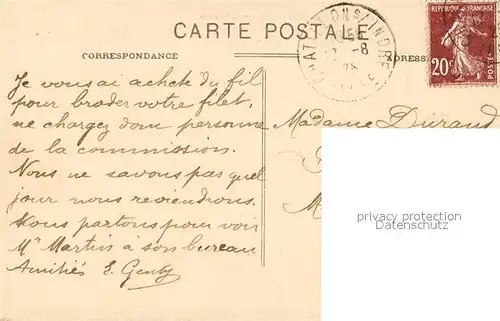 CARTE POSTALE
CORRESPONDANCE
ADRESSE
CHATILLON S/ INDRE
-8
REPUBLIQUE FRANÇAISE
20c
POSTES
Je vous ai acheté du fil
pour broder votre filet,
ne chargez donc personne
de la commission.
Nous ne savons pas quel
jour nous reviendrons.
Nous partons pour voir
Mr Martin à son bureau
Amitiés E. Genty
Madame Durand
privacy protection
Datenschutz